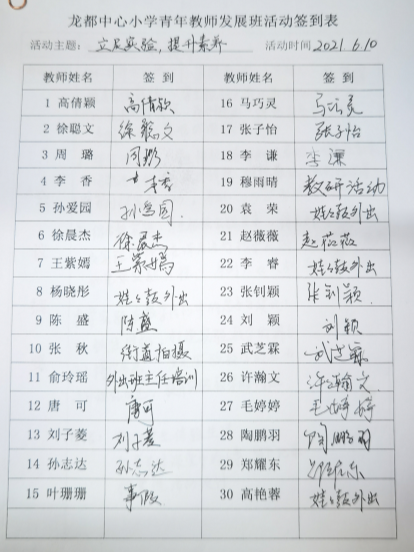 龙都中心小学青年教师发展班活动签到表
活动主题：立足实验，提升素养 活动时间2021.6.10
教师姓名 签 到 教师姓名 签 到
1 高倩颖 高倩颖 16 马巧灵 马巧灵
2 徐聪文 徐聪文 17 张子怡 张子怡
3 周 璐 周璐 18 李 谦 李谦
4 李 香 李香 19 穆雨晴 教研活动
5 孙爱园 孙爱园 20 袁 荣 外出
6 徐晨杰 徐晨杰 21 赵薇薇 赵薇薇
7 王紫嫣 王紫嫣 22 李 睿 外出
8 杨晓彤 外出 23 张钊颖 张钊颖
9 陈 盛 陈盛 24 刘 颖 刘颖
10 张 秋 街道拍摄 25 武芝霖 武芝霖
11 俞玲瑶 外出班主任培训 26 许瀚文 许瀚文
12 唐 可 唐可 27 毛婷婷 毛婷婷
13 刘子菱 刘子菱 28 陶鹏羽 陶鹏羽
14 孙志达 孙志达 29 郑耀东 郑耀东
15 叶珊珊 事假 30 高艳蓉 外出